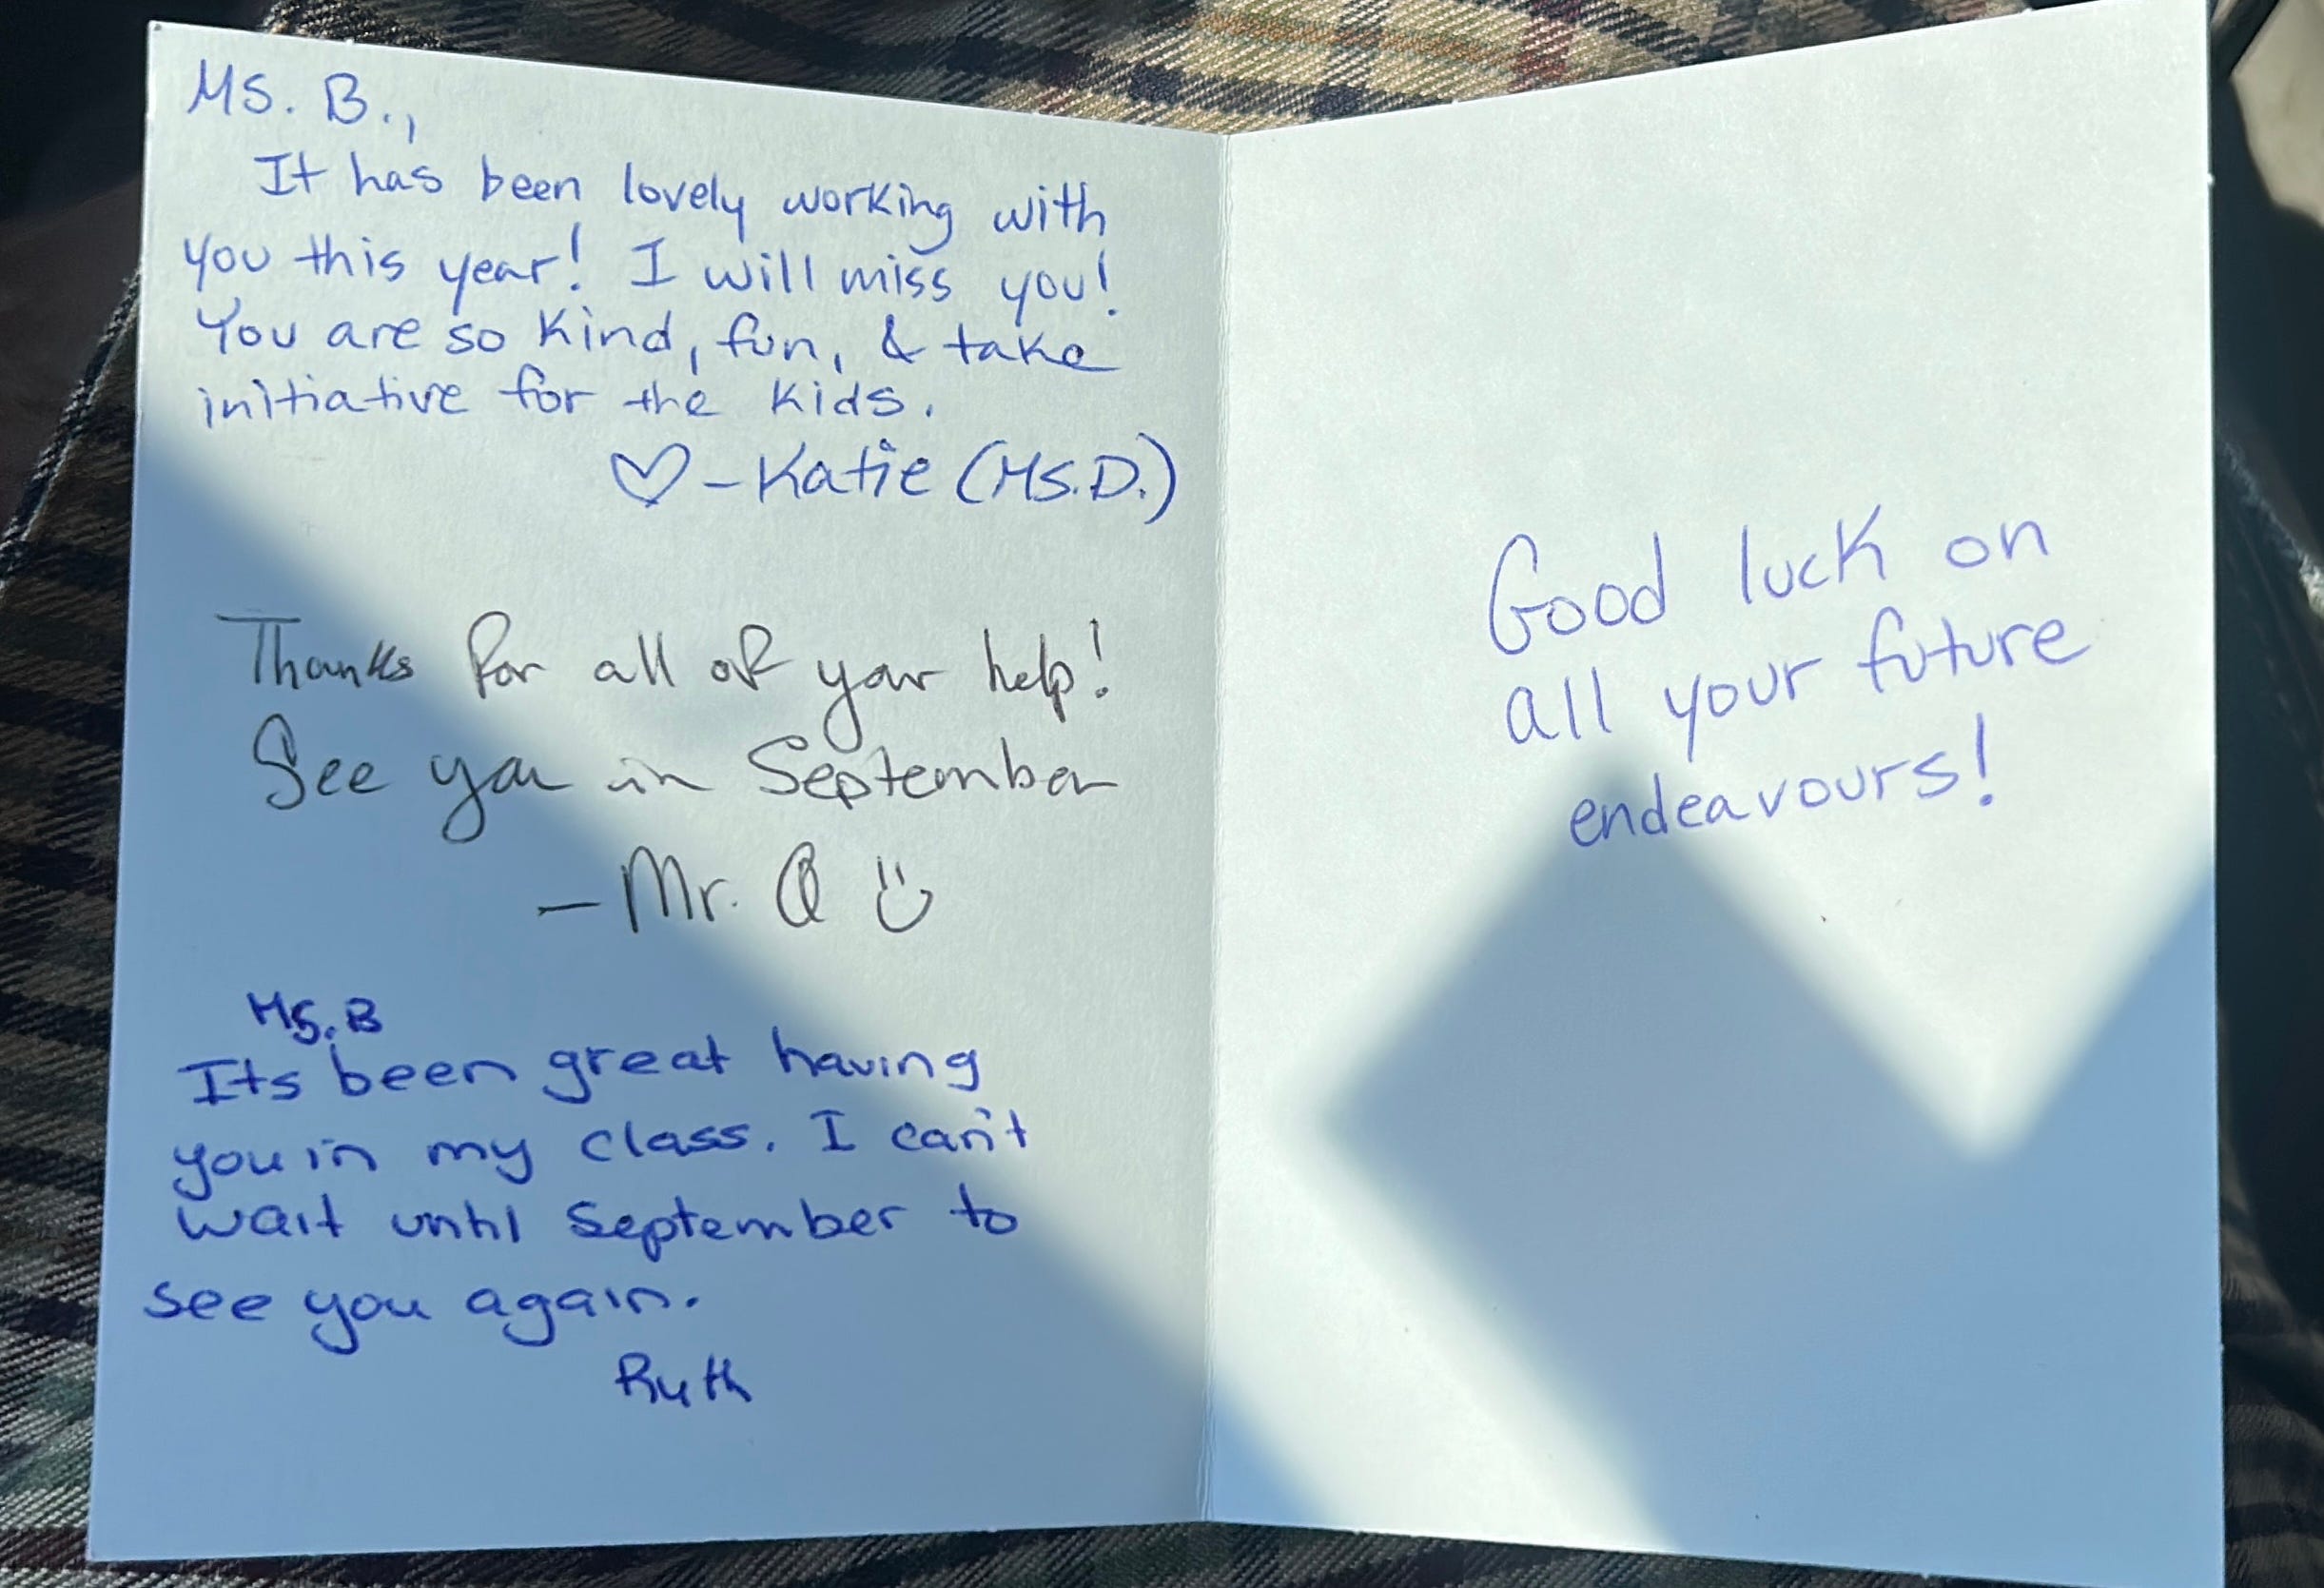 Ms. B.,
It has been lovely working with
you this year! I will miss you!
You are so kind, fun, & take
initiative for the kids.
♡ - Katie (Ms. D.)
Thanks for all of your help!
See you in September
- Mr. Q
Ms. B
Its been great having
you in my class. I can't
wait until September to
see you again.
Ruth
Good luck on
all your future
endeavours!